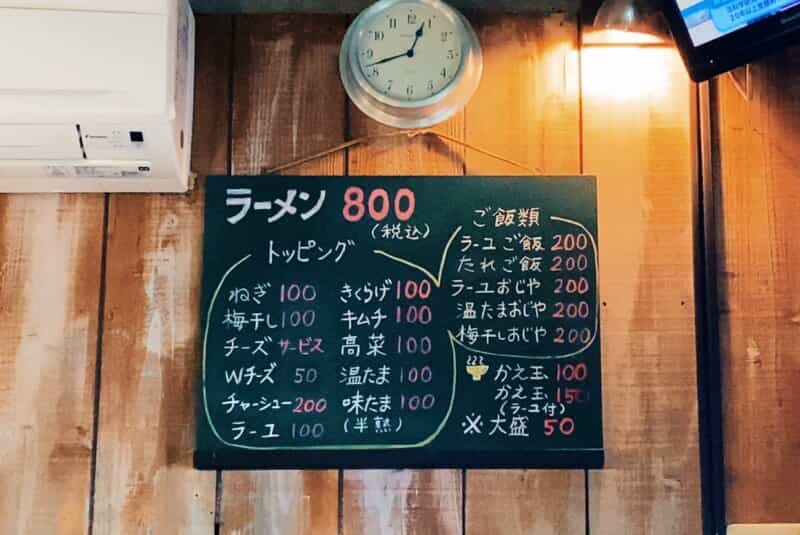 12
1
2
3
4
5
6
7
8
9
10
11
ラーメン 800
(税込)
トッピング
ねぎ 100
梅干し 100
チーズ サービス
Wチーズ 50
チャーシュー 200
ラーユ 100
きくらげ 100
キムチ 100
高菜 100
温たま 100
味たま 100
(半熟)
ご飯類
ラーユご飯 200
たれご飯 200
ラーユおじや 200
温たまおじや 200
梅干しおじや 200
かえ玉 100
かえ玉 150
(ラーユ付)
※大盛 50